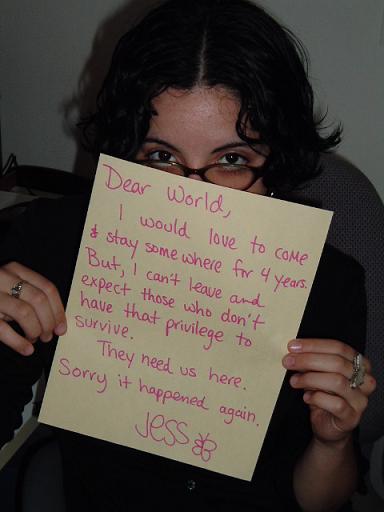 Dear World,
I would love to come
& stay somewhere for 4 years.
But, I can't leave and
expect those who don't
have that privilege to
survive.
They need us here.
Sorry it happened again.
Jess